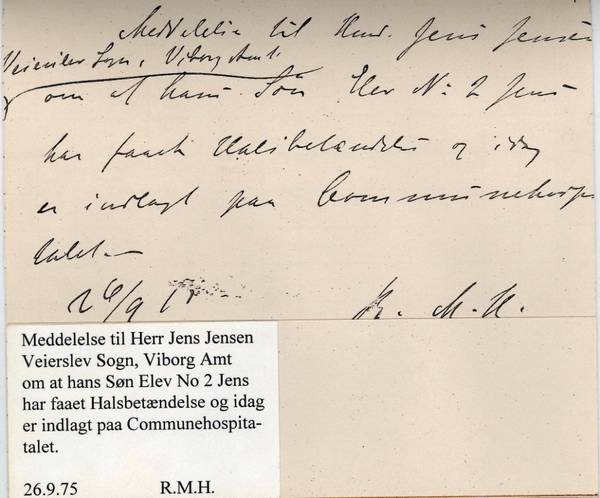 Meddelelse til Herr. Jens Jensen
Veierslev Sogn, Viborg Amt.
om at hans Søn Elev No 2 Jens
har faaet Halsbetændelse og idag
er indlagt paa Communehospi
talet.
26/9
R. M. H.
Meddelelse til Herr Jens Jensen
Veierslev Sogn, Viborg Amt
om at hans Søn Elev No 2 Jens
har faaet Halsbetændelse og idag
er indlagt paa Communehospita-
talet.
26.9.75 R.M.H.